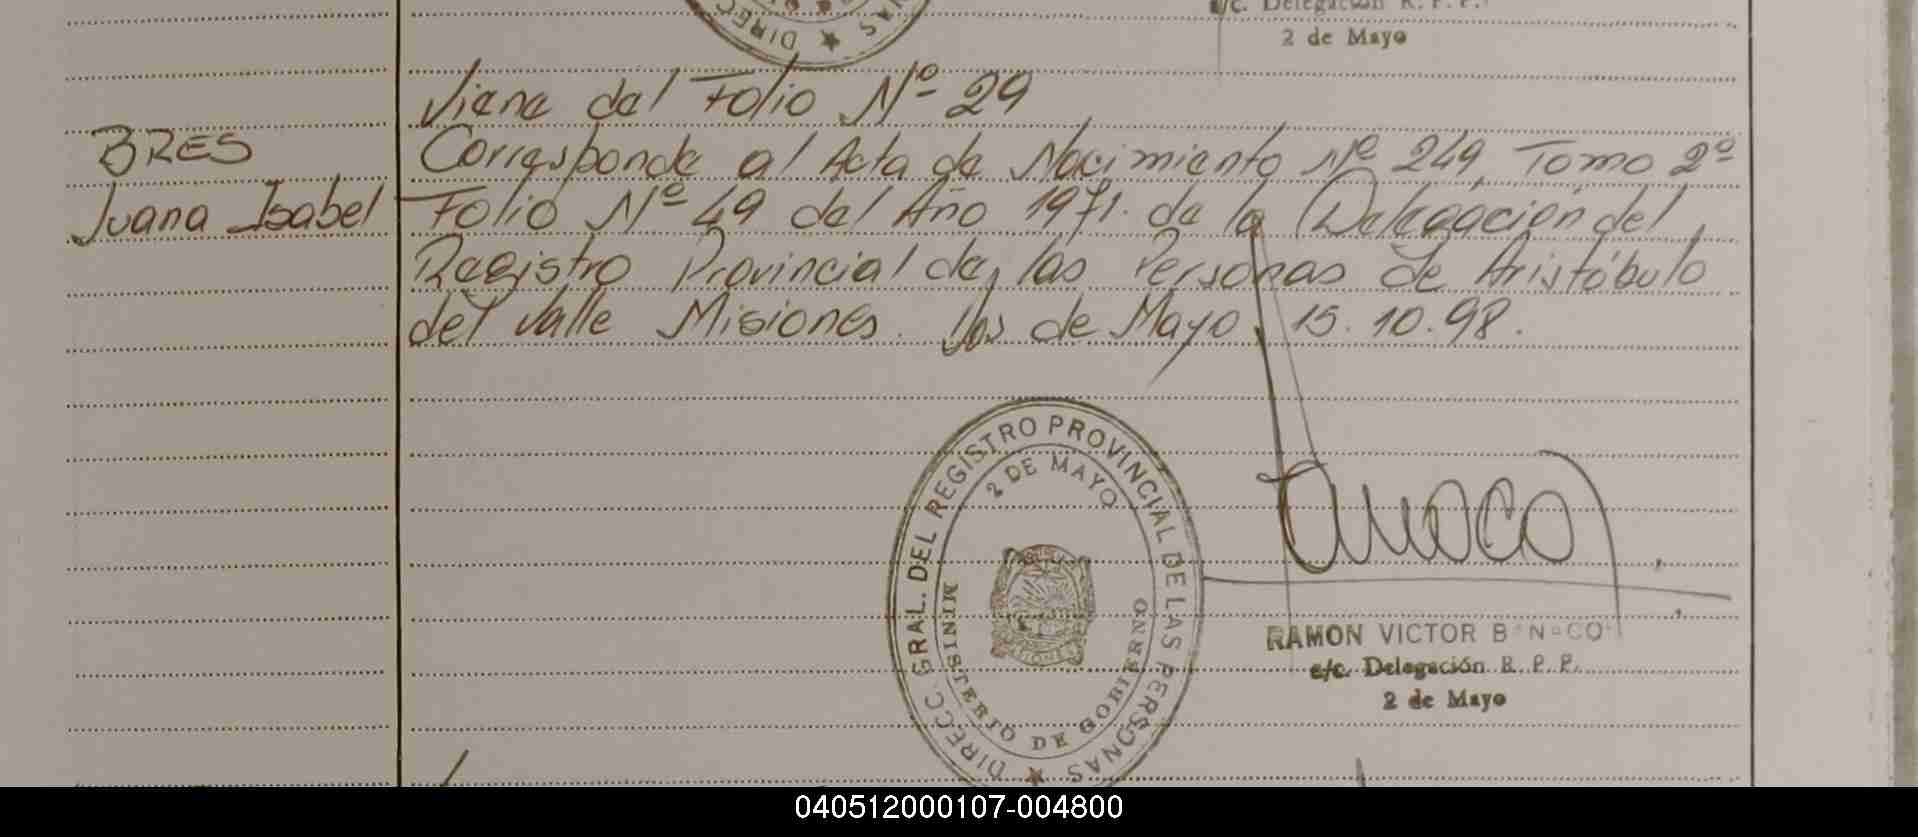 DIRECC
NAS
e/c. Delegación R. P. P.
2 de Mayo
Viene del Folio Nº 29
BRES
Corresponde al Acta de Nacimiento Nº 249, Tomo 2º
Juana Isabel
Folio Nº 49 del Año 1971. de la Delegación del
Registro Provincial de las Personas de Aristóbulo
del Valle Misiones. Dos de Mayo, 15.10.98.
DIRECC. GRAL. DEL REGISTRO PROVINCIAL DE LAS PERSONAS
2 DE MAYO
MINISTERIO DE GOBIERNO
RAMON VICTOR
e/c. Delegación R. P. P.
2 de Mayo
040512000107-004800